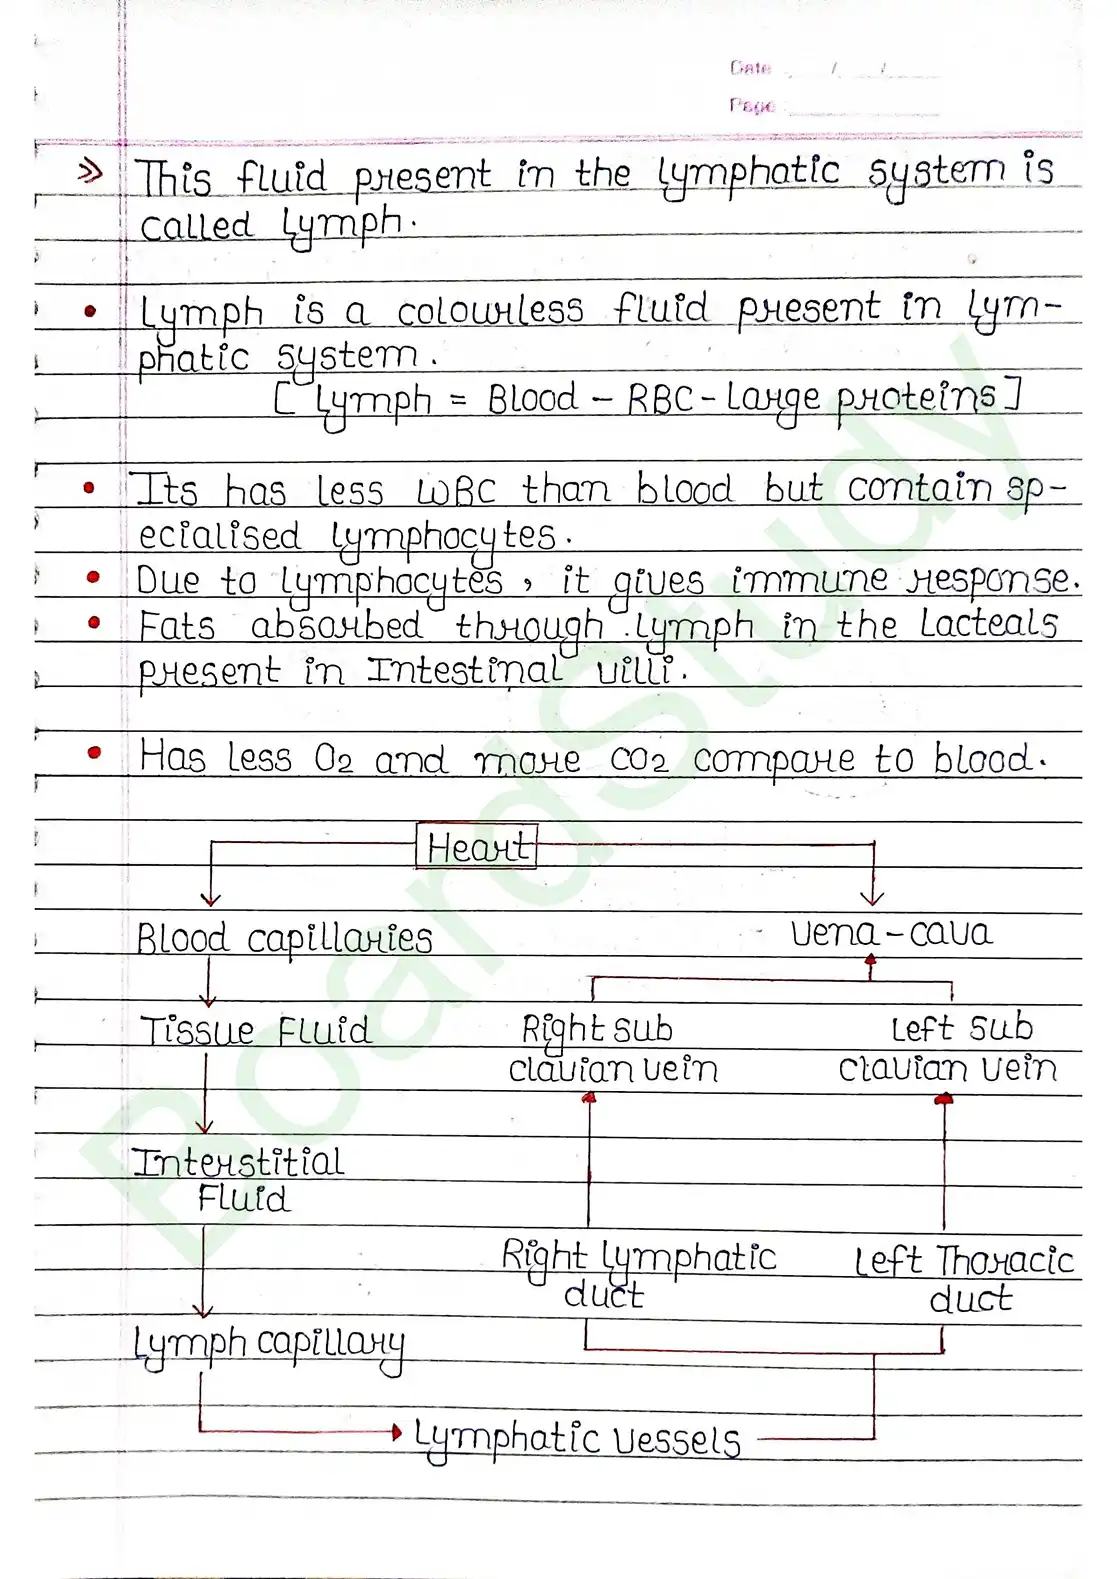 Date / /
Page
» This fluid present in the lymphatic system is
called lymph.
• Lymph is a colourless fluid present in lym-
phatic system.
[ Lymph = Blood - RBC - Large proteins ]
• Its has less WBC than blood but contain sp-
ecialised lymphocytes.
• Due to lymphocytes, it gives immune response.
• Fats absorbed through lymph in the Lacteals
present in Intestinal villi.
• Has less O2 and more CO2 compare to blood.
Heart
Blood capillaries
Vena-cava
Tissue Fluid
Right sub
clavian vein
Left sub
clavian vein
Interstitial
Fluid
Right lymphatic
duct
Left Thoracic
duct
Lymph capillary
Lymphatic vessels
BoardStudy